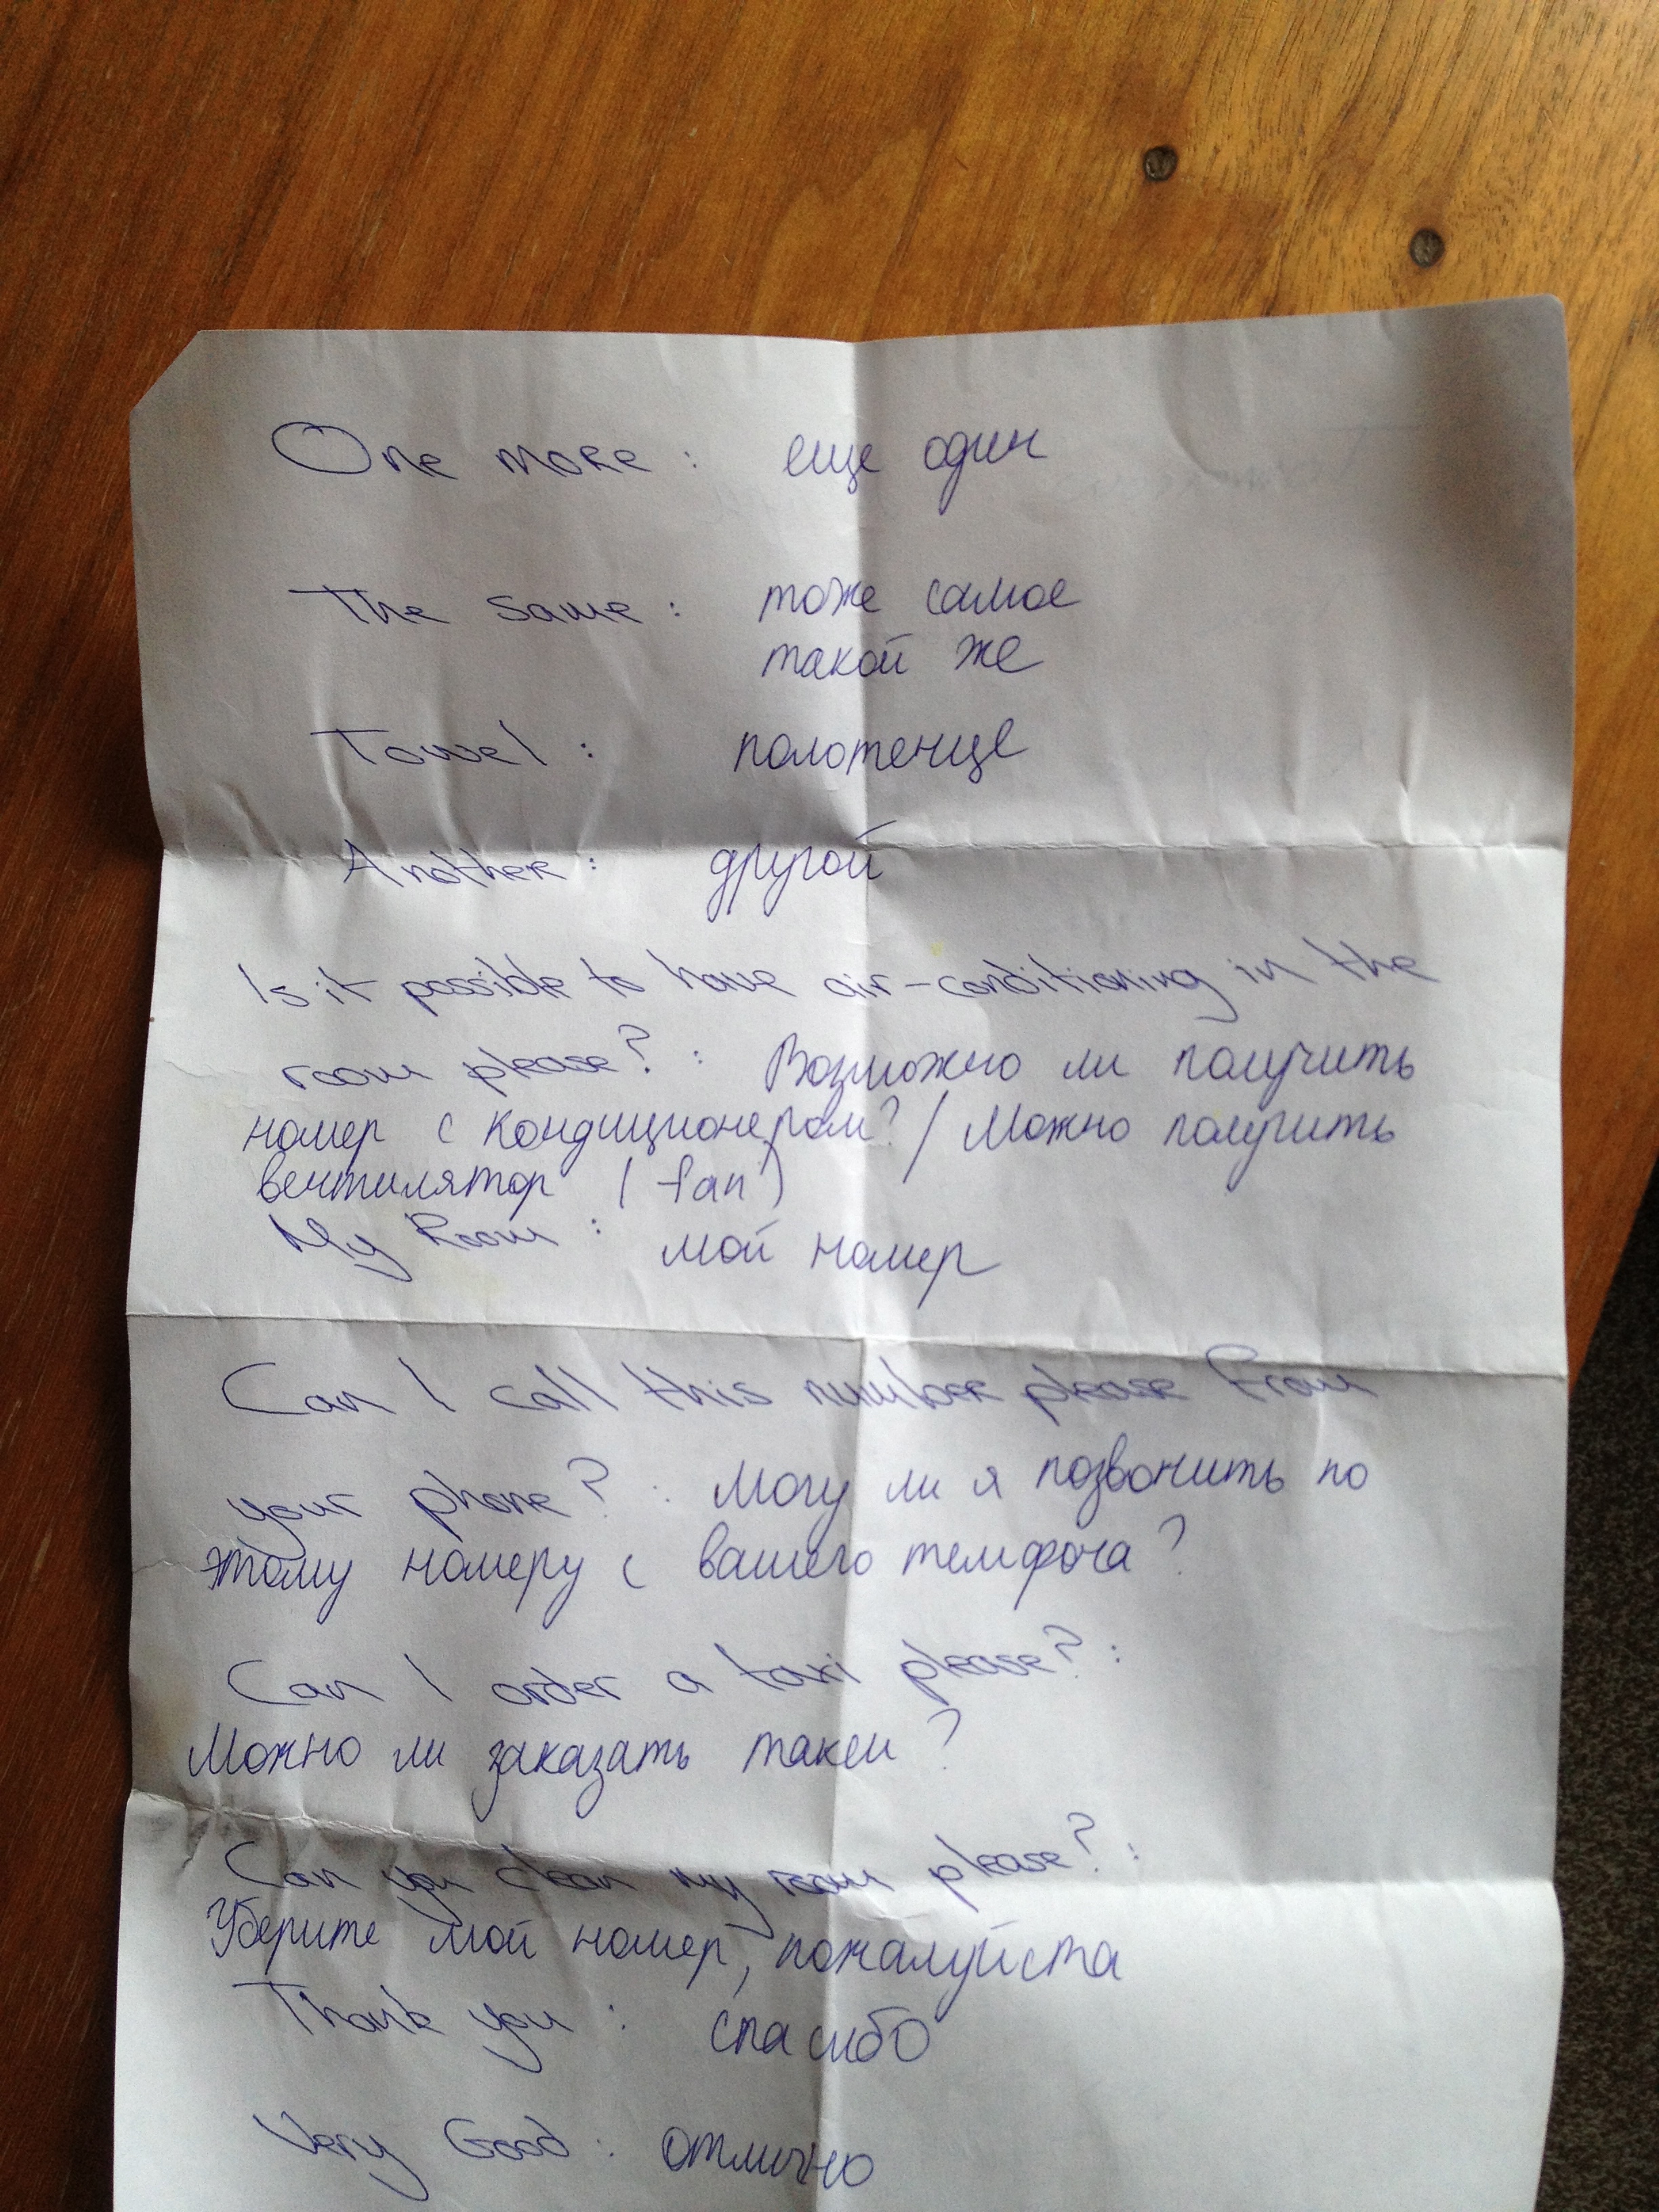 One more : еще один
The same : тоже самое
такой же
Towel : полотенце
Another : другой
Is it possible to have air-conditioning in the
room please? : Возможно ли получить
номер с кондиционером? / Можно получить
вентилятор (fan)
My Room : мой номер
Can I call this number please from
your phone? : Могу ли я позвонить по
этому номеру с вашего телефона?
Can I order a taxi please? :
Можно ли заказать такси?
Can you clean my room please? :
Уберите мой номер, пожалуйста
Thank you : спасибо
Very Good : отлично